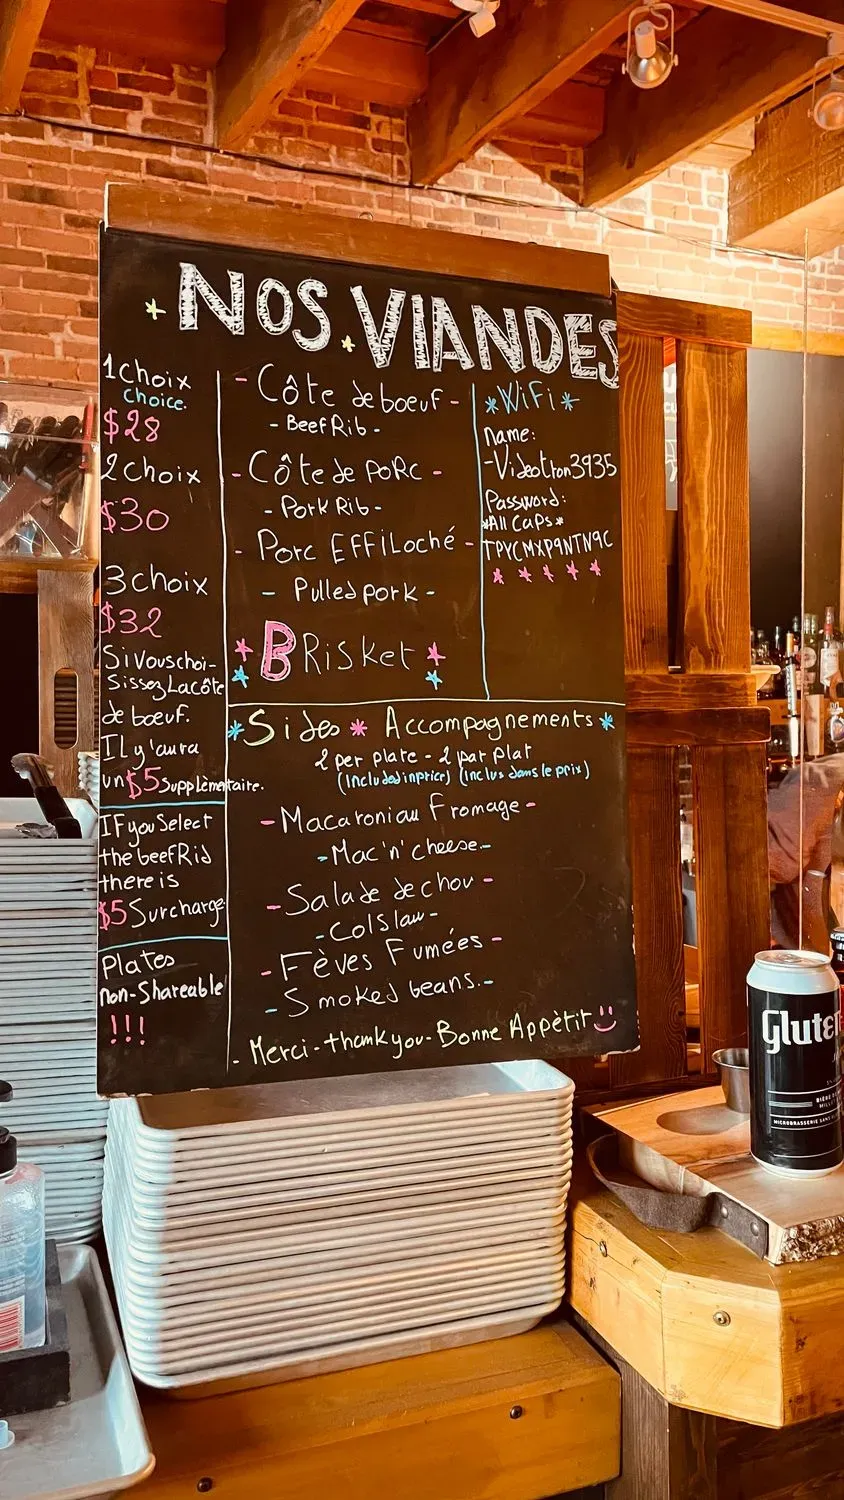 NOS VIANDES
1 choix
choice.
$28
2 choix
$30
3 choix
$32
Si vous choi-
sissez La côte
de boeuf.
Il y'aura
un $5 supplémentaire.
IF you Select
the beef Rib
there is
$5 Surcharge
Plates
non-Shareable
!!!
- Côte de boeuf -
- Beef Rib -
- Côte de PORc -
- Pork Rib -
- Porc EFFiLoché -
- Pulled pork -
BRisket
*WiFi*
Name:
-Videotron3935
Password:
*All Caps*
TPYCMXP9NTN9C
*Sides * Accompagnements*
2 per plate - 2 par plat
(Included in price) (inclus dans le prix)
- Macaroni au Fromage -
- Mac'n'cheese -
- Salade de chou -
- Colslaw -
- Fèves Fumées -
- Smoked beans. -
- Merci - thank you - Bonne Appètit
Gluten
MICROBRASSERIE SANS